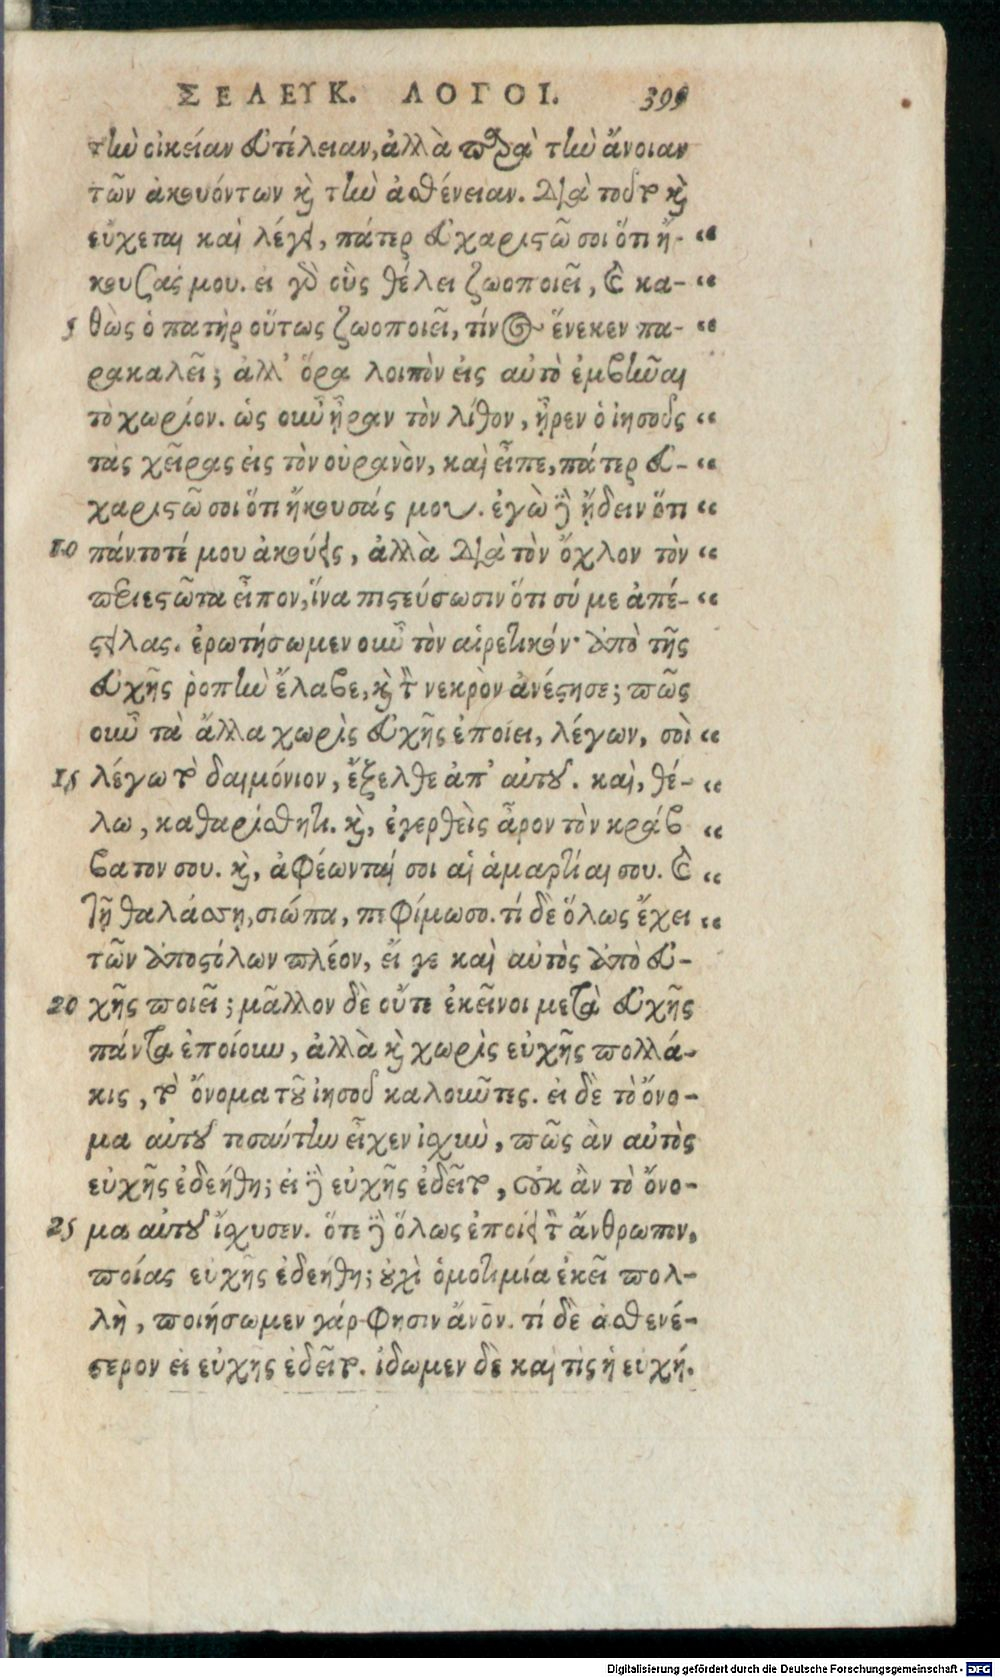 ΣΕΛΕΥΚ. ΛΟΓΟΙ. 399
τὴν οἰκείαν εὐτέλειαν, ἀλλὰ παρὰ τὴν ἄνοιαν
τῶν ἀκουόντων καὶ τὴν ἀσθένειαν. διὰ τοῦτο καὶ
εὔχεται καὶ λέγει, πάτερ εὐχαριστῶ σοι ὅτι ἤ- “
κουσάς μου. εἰ γὰρ οὓς θέλει ζωοποιεῖ, καὶ κα- “
5 θὼς ὁ πατὴρ οὕτως ζωοποιεῖ, τίνος ἕνεκεν πα- “
ρακαλεῖ; ἀλλ' ὅρα λοιπὸν εἰς αὐτὸ ἐμβῆναι
τὸ χωρίον. ὡς οὖν ἦραν τὸν λίθον, ἦρεν ὁ ἰησοῦς “
τὰς χεῖρας εἰς τὸν οὐρανὸν, καὶ εἶπε, πάτερ εὐ- “
χαριστῶ σοι ὅτι ἤκουσάς μου. ἐγὼ δὲ ᾔδειν ὅτι “
10 πάντοτέ μου ἀκούεις, ἀλλὰ διὰ τὸν ὄχλον τὸν “
περιεστῶτα εἶπον, ἵνα πιστεύσωσιν ὅτι σύ με ἀπέ- “
στειλας. ἐρωτήσωμεν οὖν τὸν αἱρετικόν· ἀπὸ τῆς
εὐχῆς ῥοπὴν ἔλαβε, καὶ τὸν νεκρὸν ἀνέστησε; πῶς
οὖν τὰ ἄλλα χωρὶς εὐχῆς ἐποίει, λέγων, σοὶ “
15 λέγω τὸ δαιμόνιον, ἔξελθε ἀπ' αὐτοῦ. καὶ, θέ- “
λω, καθαρίσθητι. καὶ, ἐγερθεὶς ἆρον τὸν κράβ “
βατον σου. καὶ, ἀφέωνταί σοι αἱ ἁμαρτίαι σου. καὶ “
τῇ θαλάσσῃ, σιώπα, πεφίμωσο. τί δὲ ὅλως ἔχει “
τῶν ἀποστόλων πλέον, εἴ γε καὶ αὐτὸς ἀπὸ εὐ-
20 χῆς ποιεῖ; μᾶλλον δὲ οὔτε ἐκεῖνοι μετὰ εὐχῆς
πάντα ἐποίουν, ἀλλὰ καὶ χωρὶς εὐχῆς πολλά-
κις, τὸ ὄνομα τοῦ ἰησοῦ καλοῦντες. εἰ δὲ τὸ ὄνο-
μα αὐτοῦ τοσαύτην εἶχεν ἰσχὺν, πῶς ἂν αὐτὸς
εὐχῆς ἐδεήθη; εἰ δὲ εὐχῆς ἐδεῖτο, οὐκ ἂν τὸ ὄνο-
25 μα αὐτοῦ ἴσχυσεν. ὅτε δὲ ὅλως ἐποίει τὸν ἄνθρωπον,
ποίας εὐχῆς ἐδεήθη; οὐχὶ ὁμοτιμία ἐκεῖ πολ-
λὴ, ποιήσωμεν γάρ φησιν ἄνον. τί δὲ ἀσθενέ-
στερον εἰ εὐχῆς ἐδεῖτο. ἴδωμεν δὲ καὶ τίς ἡ εὐχή.
Digitalisierung gefördert durch die Deutsche Forschungsgemeinschaft - DFG